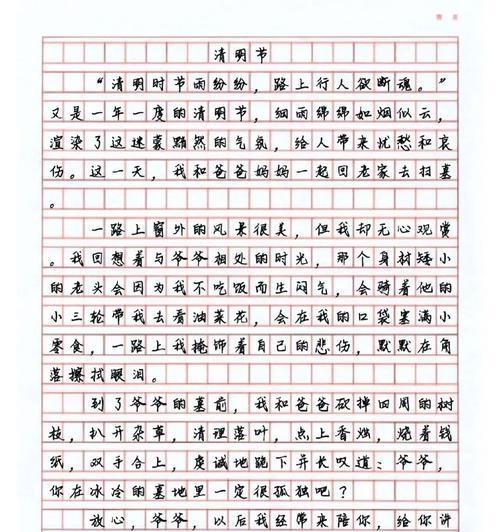 清明节
“清明时节雨纷纷，路上行人欲断魂。”
又是一年一度的清明节，细雨绵绵如烟似云，
渲染了这迷袅黯然的气氛，给人带来忧愁和哀
伤。这一天，我和爸爸妈妈一起回老家去扫墓
。
一路上窗外的风景很美，但我却无心观赏
。我回想着与爷爷相处的时光，那个身材矮小
的老头会因为我不吃饭而生闷气，会骑着他的
小三轮带我去看油菜花，会在我的口袋塞满小
零食，一路上我掩饰着自己的悲伤，默默在角
落擦拭眼泪。
到了爷爷的墓前，我和爸爸砍掉四周的树
枝，扒开杂草，清理落叶，点上香烛，烧着钱
纸，双手合上，虔诚地跪下并长叹道：爷爷，
你在冰冷的墓地里一定很孤独吧？
放心，爷爷，以后我经常来陪你，给你讲